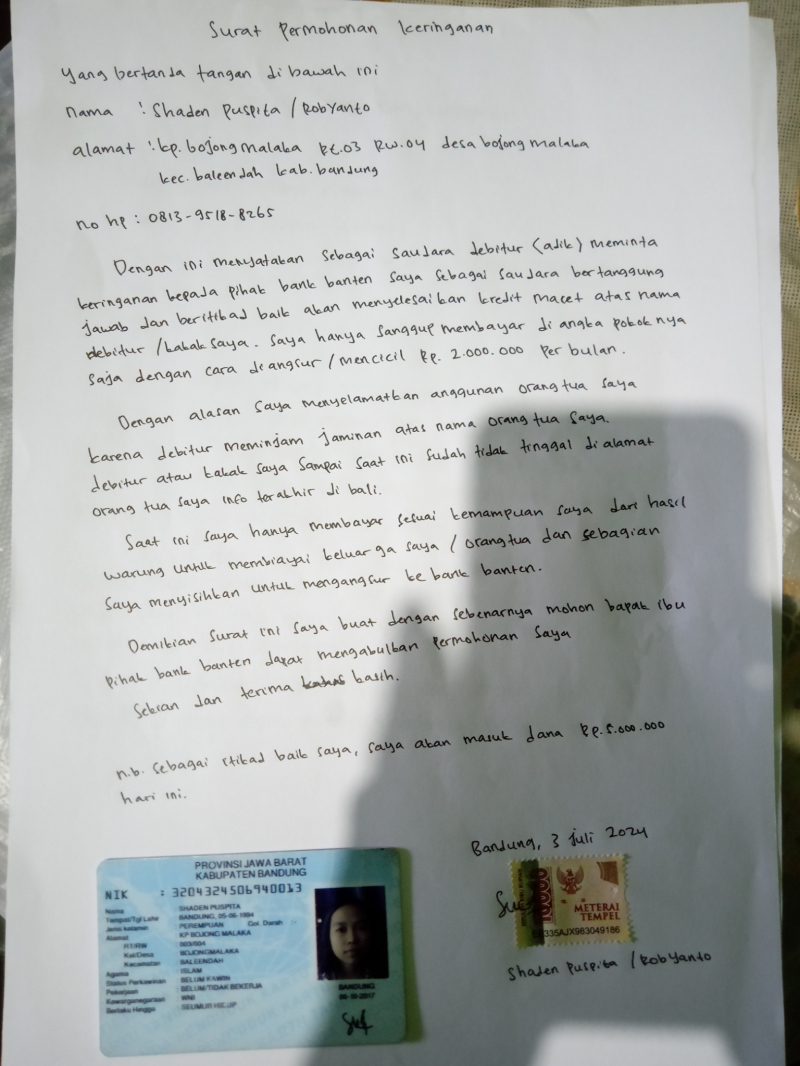 Surat Permohonan keringanan
Yang bertanda tangan di bawah ini
nama : Shaden Puspita / Robyanto
alamat : kp. bojong malaka Rt.03 Rw.04 desa bojong malaka
kec. baleendah kab. bandung
no hp : 0813-9518-8265
Dengan ini menyatakan sebagai saudara debitur (adik) meminta
keringanan kepada pihak bank banten saya sebagai saudara bertanggung
jawab dan beritikad baik akan menyelesaikan kredit macet atas nama
debitur / kakak saya. saya hanya sanggup membayar di angka pokok nya
saja dengan cara diangsur / mencicil Rp. 2.000.000 Per bulan.
Dengan alasan saya menyelamatkan anggunan orang tua saya
karena debitur meminjam jaminan atas nama orang tua saya.
debitur atau kakak saya sampai saat ini sudah tidak tinggal di alamat
orang tua saya info terakhir di bali.
Saat ini saya hanya membayar sesuai kemampuan saya dari hasil
warung untuk membiayai keluarga saya / orang tua dan sebagian
saya menyisihkan untuk mengangsur ke bank banten.
Demikian surat ini saya buat dengan sebenarnya mohon bapak ibu
pihak bank banten dapat mengabulkan permohonan saya
Sekian dan terima kasih.
n.b. sebagai itikad baik saya, saya akan masuk dana Rp. 5.000.000
hari ini.
Bandung, 3 juli 2024
PROVINSI JAWA BARAT
KABUPATEN BANDUNG
NIK : 3204324506940013
Nama SHADEN PUSPITA
Tempat/Tgl Lahir BANDUNG, 05-06-1994
Jenis kelamin PEREMPUAN Gol. Darah :-
Alamat KP BOJONG MALAKA
RT/RW 003/004
Kel/Desa BOJONGMALAKA
Kecamatan BALEENDAH
Agama ISLAM
Status Perkawinan BELUM KAWIN
Pekerjaan BELUM/TIDAK BEKERJA
Kewarganegaraan WNI
Berlaku Hingga SEUMUR HIDUP
BANDUNG
10000
METERAI
TEMPEL
335AJX983049186
Shaden Puspita / Robyanto